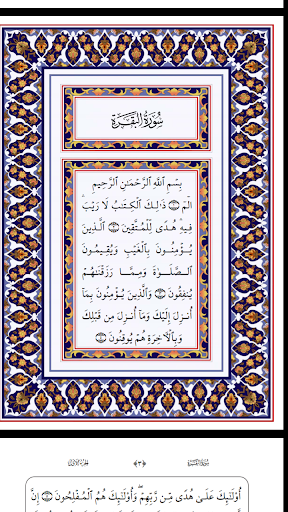 سُورَةُ البَقَرَةِ
بِسْمِ ٱللَّهِ ٱلرَّحْمَـٰنِ ٱلرَّحِيمِ
الٓمٓ ۝١ ذَٰلِكَ ٱلْكِتَـٰبُ لَا رَيْبَ ۛ
فِيهِ ۛ هُدًى لِّلْمُتَّقِينَ ۝٢ ٱلَّذِينَ
يُؤْمِنُونَ بِٱلْغَيْبِ وَيُقِيمُونَ
ٱلصَّلَوٰةَ وَمِمَّا رَزَقْنَـٰهُمْ
يُنفِقُونَ ۝٣ وَٱلَّذِينَ يُؤْمِنُونَ بِمَآ
أُنزِلَ إِلَيْكَ وَمَآ أُنزِلَ مِن قَبْلِكَ
وَبِٱلْـَٔاخِرَةِ هُمْ يُوقِنُونَ ۝٤
سُورَةُ البَقَرَةِ ﴿٣﴾ الجُزءُ الأوّل
أُو۟لَـٰٓئِكَ عَلَىٰ هُدًى مِّن رَّبِّهِمْ ۖ وَأُو۟لَـٰٓئِكَ هُمُ ٱلْمُفْلِحُونَ ۝٥ إِنَّ